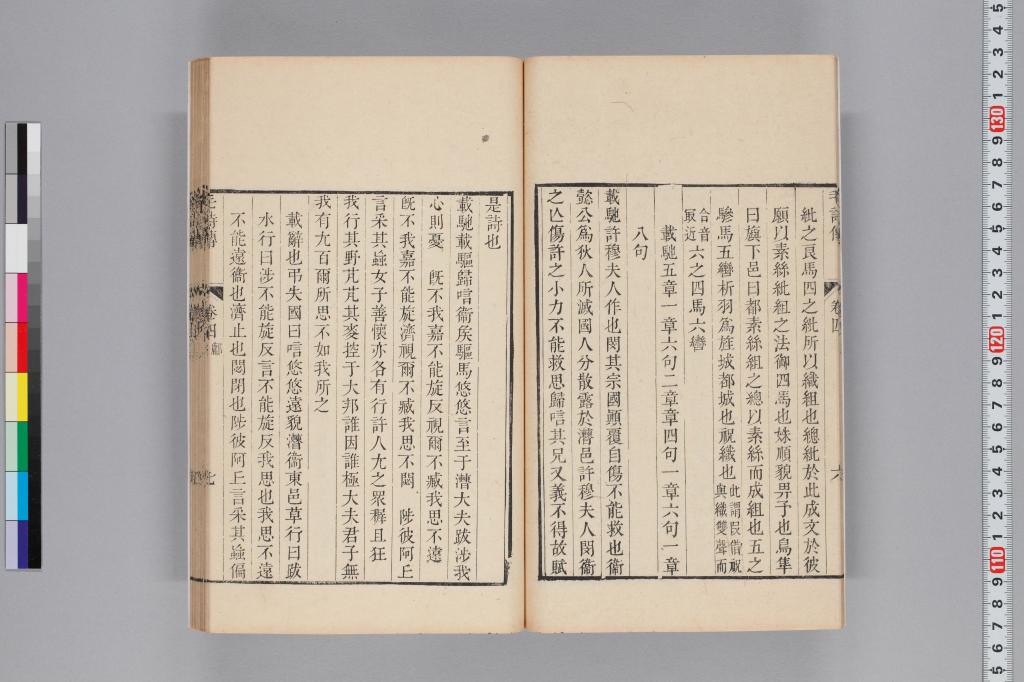 紕之良馬四之紕所以織組也總紕於此成文於彼
願以素絲紕組之法御四馬也姝順貌畀予也鳥隼
曰旟下邑曰都素絲組之總以素絲而成組也五之
驂馬五轡析羽爲旌城都城也祝織也此謂叚借祝與織雙聲而
合音最近六之四馬六轡
載馳五章一章六句二章章四句一章六句一章
八句
載馳許穆夫人作也閔其宗國顚覆自傷不能救也衞
懿公爲狄人所滅國人分散露於漕邑許穆夫人閔衞
之亾傷許之小力不能救思歸唁其兄又義不得故賦
是詩也
載馳載驅歸唁衞矦驅馬悠悠言至于漕大夫跋涉我
心則憂　旣不我嘉不能旋反視爾不臧我思不遠
旣不我嘉不能旋濟視爾不臧我思不閟　陟彼阿丘
言采其蝱女子善懷亦各有行許人尤之眾穉且狂
我行其野芃芃其麥控于大邦誰因誰極大夫君子無
我有尤百爾所思不如我所之
載辭也弔失國曰唁悠悠遠貌漕衞東邑草行曰跋
水行曰涉不能旋反言不能旋反我思也我思不遠
不能遠衞也濟止也閟閉也陟彼阿丘言采其蝱偏
毛詩傳　卷四　鄘　七